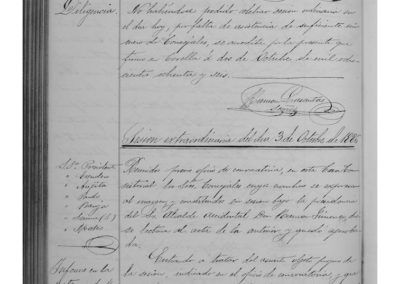 Diligencia.
No habiéndose podido celebrar sesion ordinaria en
el dia hoy, por falta de asistencia de suficiente nú-
mero de Concejales, se acredita p.r la presente que
firmo en Corella á dos de Octubre de mil ocho-
cientos ochenta y seis.
Sesion extraordinaria del dia 3 de Octubre de 1886
Reunidos previo oficio de convocatoria, en esta Casa Con-
sistorial los Sres. Concejales cuyos nombres se expresan
al margen y constituidos en sesion bajo la presidencia
del Sr. Alcalde accidental Don
se lectura al acta de la anterior y quedó aproba-
da.
Entrando á tratar del asunto objeto
de la sesion, indicado en el oficio de convocatoria, y que
Sres. Presidente
Informe en la